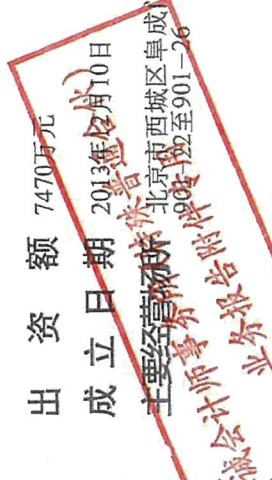 出资额 7470万元
成立日期 2013年12月10日
主要经营场所 北京市西城区阜成
901-22至901-26
诚会计师事务所(特殊普通合伙)
业务报告附件专用